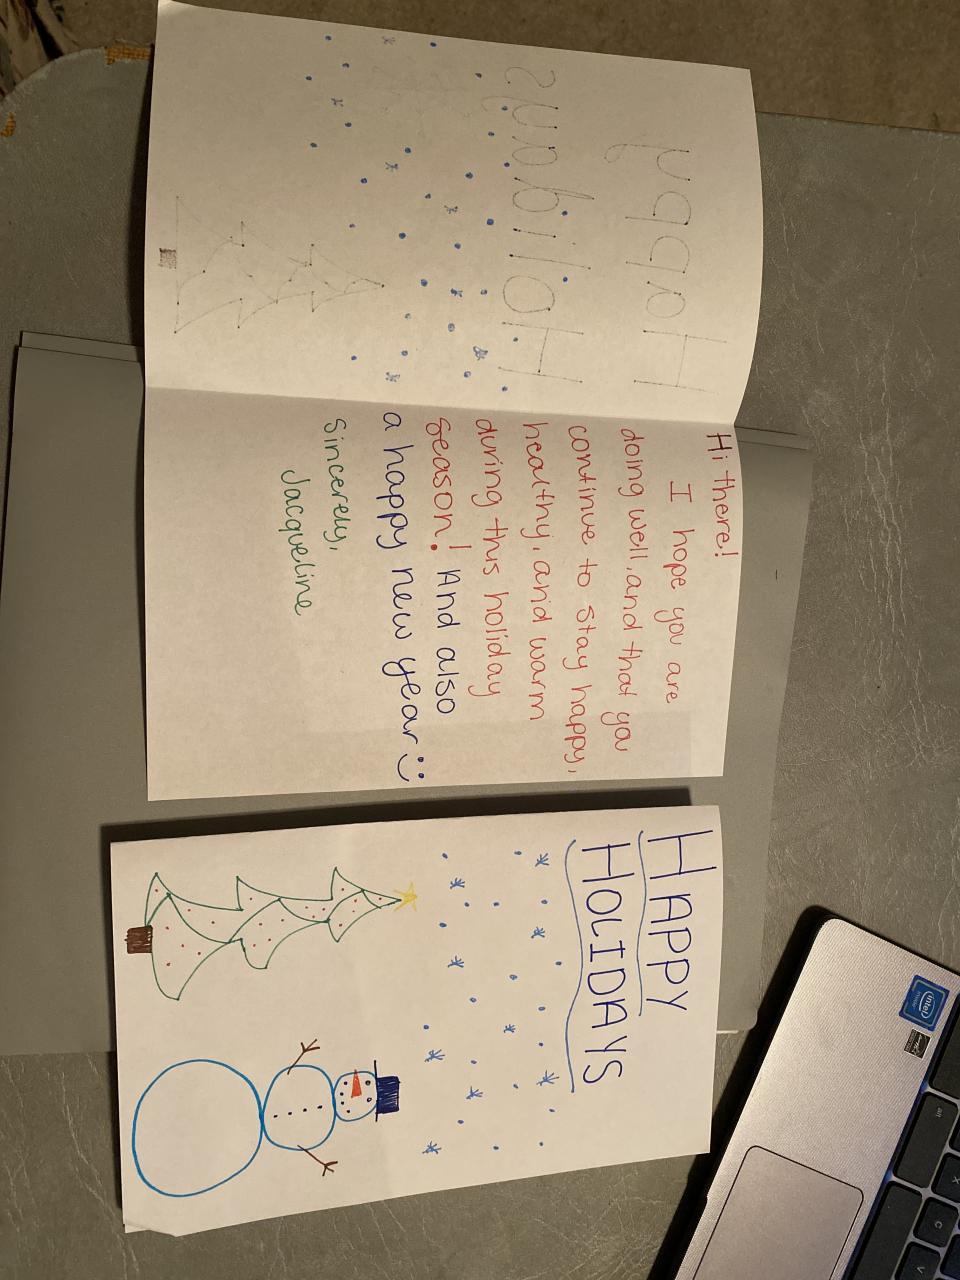 Hi there!
I hope you are
doing well, and that you
continue to stay happy,
healthy, and warm
during this holiday
season! And also
a happy new year :)
Sincerely,
Jacqueline
HAPPY
HOLIDAYS
Happy
Holidays
intel
alt
X
C
V